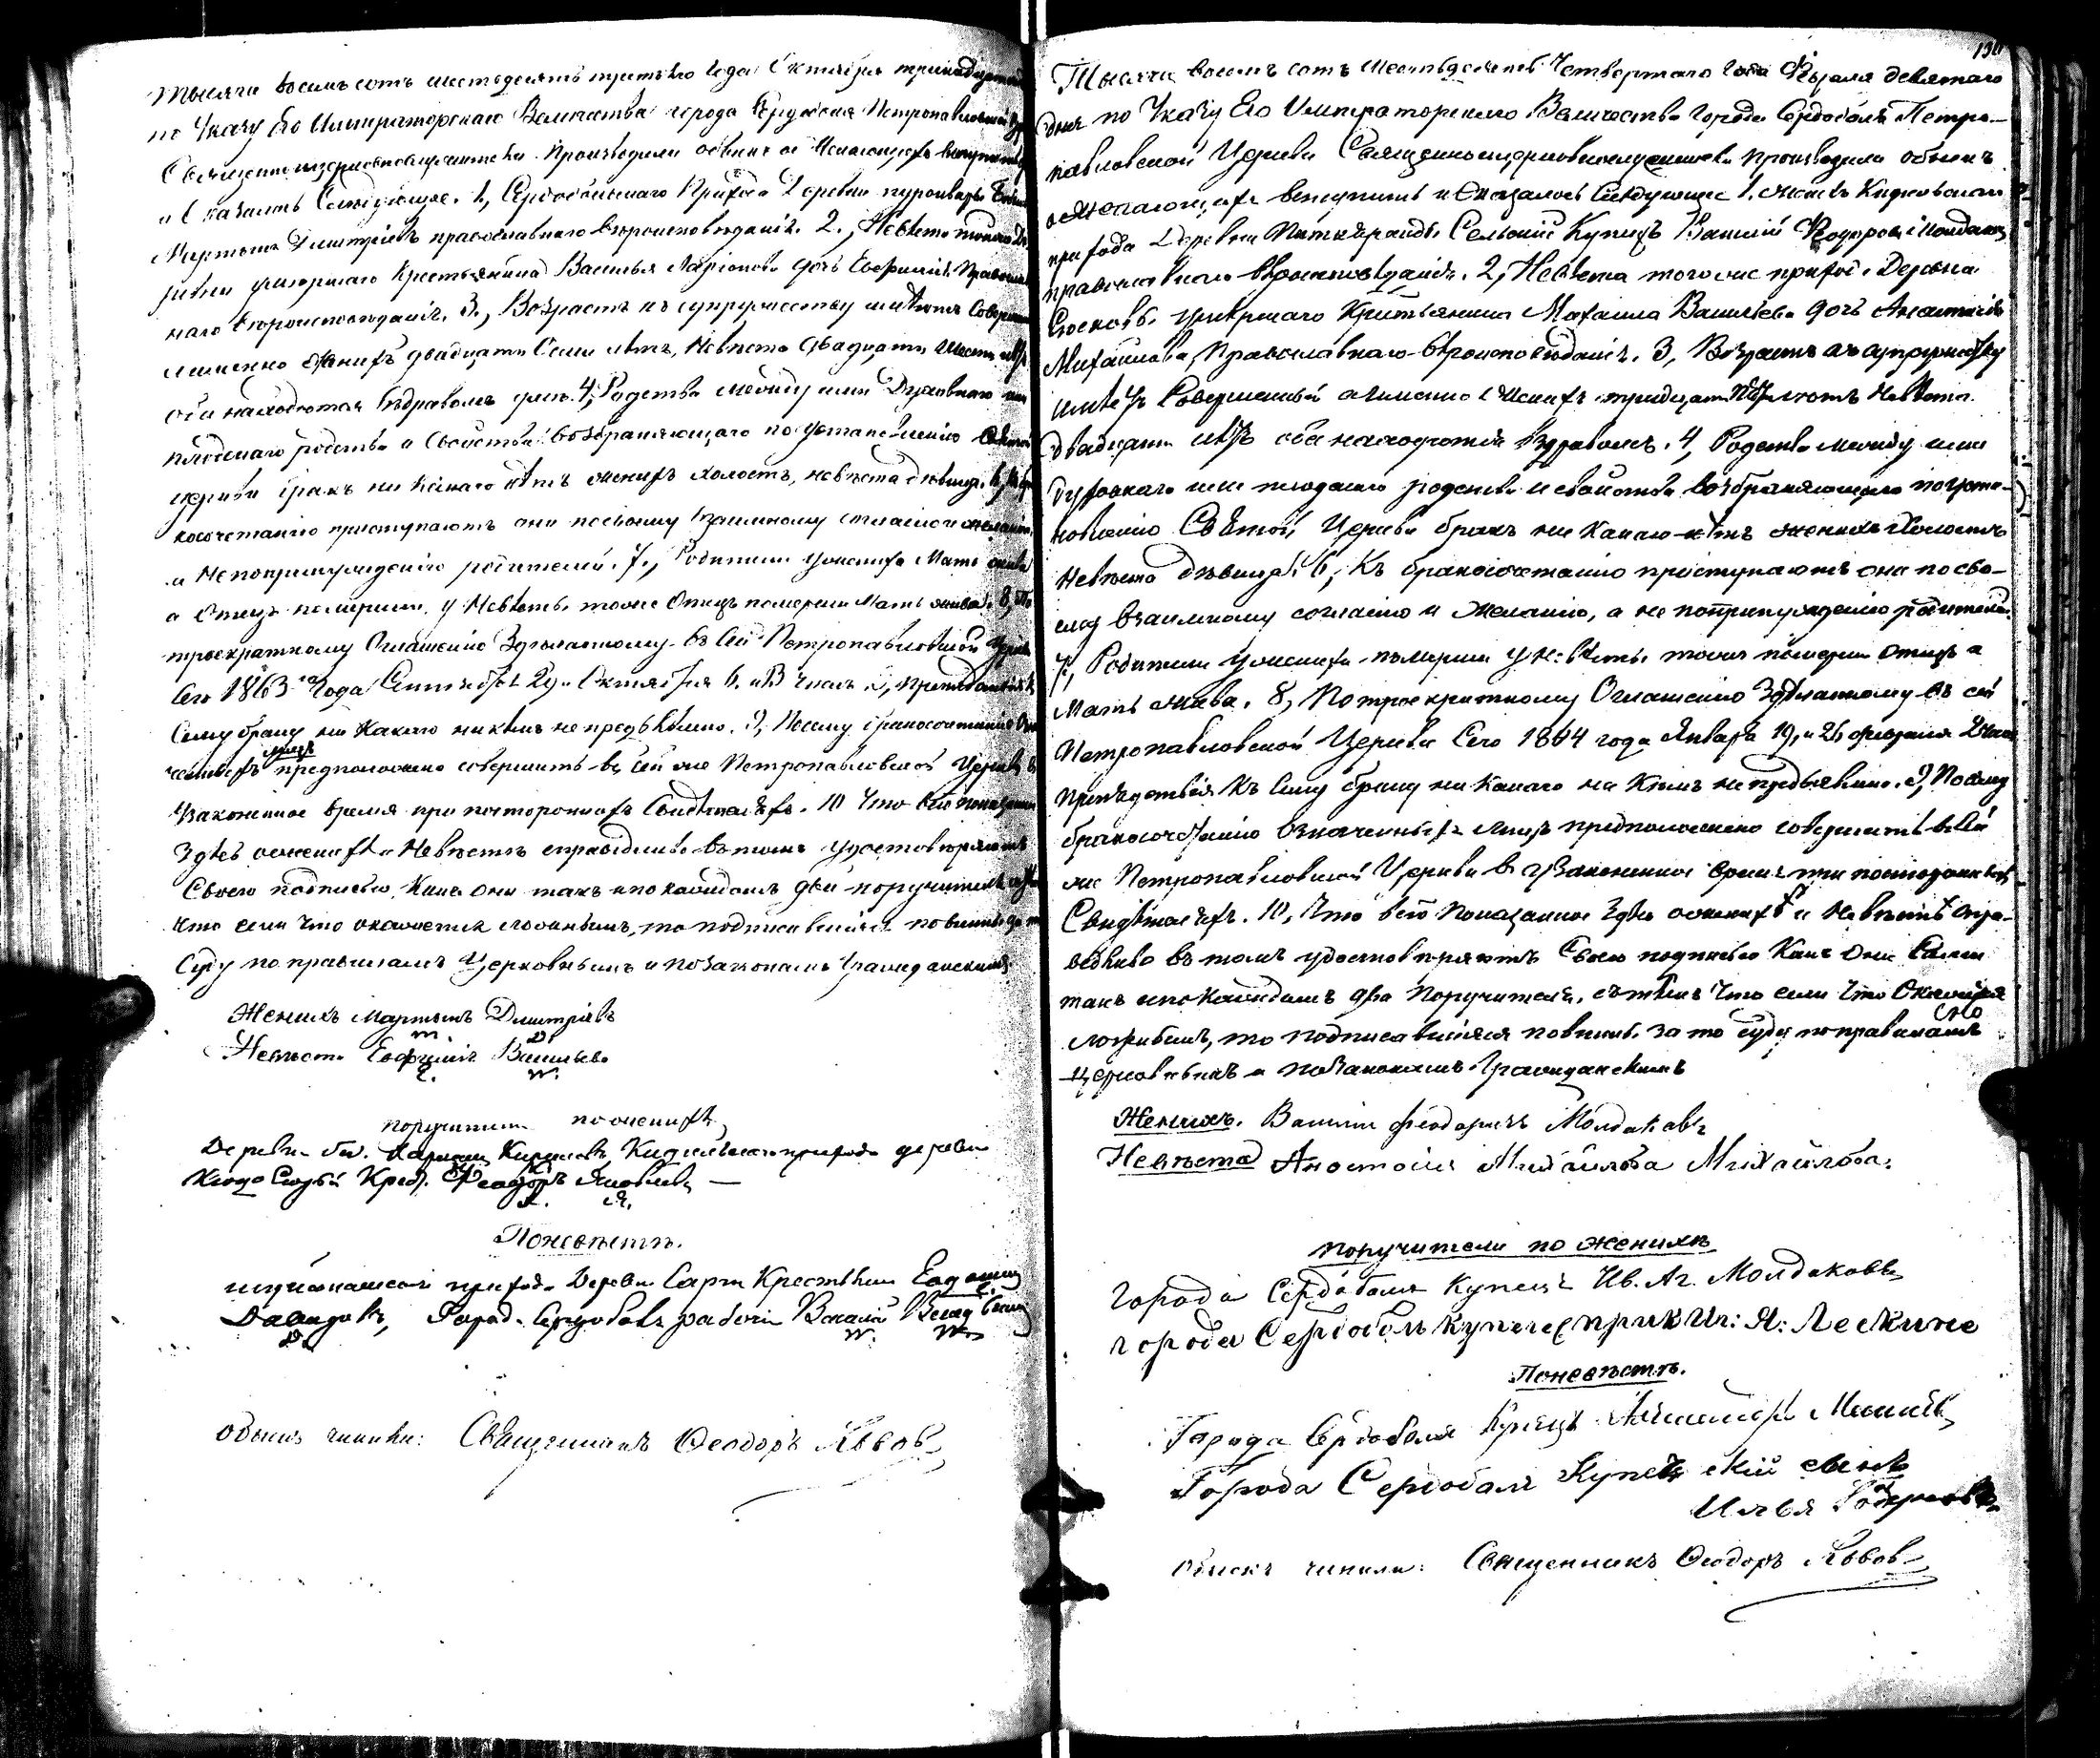 Тысяча восемь сотъ шестьдесятъ третьяго Года Октября тринадцатаго
по Указу Его Императорскаго Величества города Сердоболя Петропавловской
Священноцерковнослужители производили обыскъ о желающихъ вступить
и оказалось следующее. 1, Сердобольскаго Прихода Деревни
Мартынъ Дмитріевъ православнаго вѣроисповѣданія. 2, Невѣста тогоже
умершаго Крестьянина Василья Ларіонова дочь Евфимія Православ
наго вѣроисповѣданія. 3, Возрастъ къ супружеству имѣютъ Совершен
имянно Женихъ двадцати Семи лѣтъ, Невѣста двадцати Шести лѣтъ
оба находятся въ здравомъ умѣ. 4, Родства между ими Духовнаго или
плотскаго родства и Свойства возбраняющаго по установленію Святой
церкви бракъ ни какаго нѣтъ женихъ холостъ, невѣста дѣвица. 6, Къ бра
косочетанію приступаютъ они по своему взаимному согласію и желанію
и не по принужденію родителей. 7, Родители у жениха Мать жива
а Отецъ померши, у Невѣсты тоже Отецъ померши Мать жива. 8, По
троекратному Оглашенію Здѣланному въ сей Петропавловской Церкви
Сего 1863 го Года Сентября 29, Октября 6, и 13 числъ, препятствія къ
Сему браку ни какаго ни кѣмъ не предъявлено. 9, Посему бракосочетаніе Озна
ченныхъ лицъ предположено совершить въ сей же Петропавловской Церкви въ
Узаконенное время при постороннихъ Свидѣтеляхъ. 10 Что всѣ показанное
Здѣсь о женихѣ и Невѣстѣ справедливо въ томъ удостовѣряютъ
Своею подписью Какъ они такъ и по каждомъ два поручителя съ тѣмъ
что если что окажется ложнымъ, то подписавшіеся повинны за то
Суду по правиламъ Церковнымъ и по Законамъ Гражданскимъ.
Женихъ Мартынъ Дмитріевъ
Невѣста Евфимія Васильева
поручители по женихѣ
Деревни Кидельскаго прихода деревни
Крест. Феодоръ Яковлевъ
По невѣстѣ.
прихода Деревни Сарги Крестьянин
Давидовъ, Город. Сердоболя рабочій Василій
Обыскъ чинили: Священникъ Ѳеодоръ Львовъ
Тысяча восемь сотъ шестьдесятъ Четвертаго Года Февраля девятаго
дня по Указу Его Императорскаго Величества Города Сердоболя Петро-
павловской Церкви Священноцерковнослужители производили обыскъ
о желающихъ вступить и Оказалось слѣдующее 1. женихъ Кидельскаго
прихода Деревни Питкяранды Сельскій Купецъ Василій Федоровъ Молдаковъ
православнаго вѣроисповѣданія. 2, Невѣста того же прихода Деревни
умершаго Крестьянина Михаила Васильева дочь Анастасія
Михайлова, Православнаго вѣроисповѣданія. 3, Возрастъ къ супружеству
имѣютъ Совершенный а именно Женихъ тридцати лѣтъ Невѣста
двадцати лѣтъ оба находятся въ здравомъ. 4, Родства между ими
духовнаго или плотскаго родства и свойства возбраняющаго по уста-
новленію Святой Церкви бракъ ни какаго нѣтъ женихъ Холостъ
Невѣста дѣвица. 6, Къ бракосочетанію приступаютъ они по сво-
ему взаимному согласію и желанію, а не по принужденію родителей.
7, Родители у жениха померши у невѣсты тоже померши Отецъ а
Мать жива. 8, По троекратному Оглашенію Здѣланному въ сей
Петропавловской Церкви Сего 1864 года Января 19, и 26 февраля 2 числ
Препятствія Къ Сему браку ни какаго ни Кѣмъ не предъявлено. 9, Посему
бракосочетаніе означенныхъ лицъ предположено совершить въ сей
же Петропавловской Церкви въ узаконенное время при постороннихъ
Свидѣтеляхъ. 10, Что всѣ Показанное Здѣсь о женихѣ и Невѣстѣ спра-
ведливо въ томъ удостовѣряютъ Своею подписью Какъ Они Сами
такъ и по Каждомъ два Поручителя, съ тѣмъ Что если что Окажется
ложнымъ, то подписавшіеся повинны за то суду по правиламъ
Церковнымъ и по Законамъ Гражданскимъ
Женихъ. Василій Феодоровъ Молдаковъ
Невѣста Анастасія Михайлова Михайлова.
поручители по женихѣ
Города Сердоболя Купецъ Ив. Аг. Молдаковъ
города Сердоболь купечес прик Ил: Я: Лескине
По невѣстѣ.
Города Сердоболя Купецъ
Города Сердоболя Купецкій сынъ
Илья
Обыскъ чинили: Священникъ Ѳеодоръ Львовъ